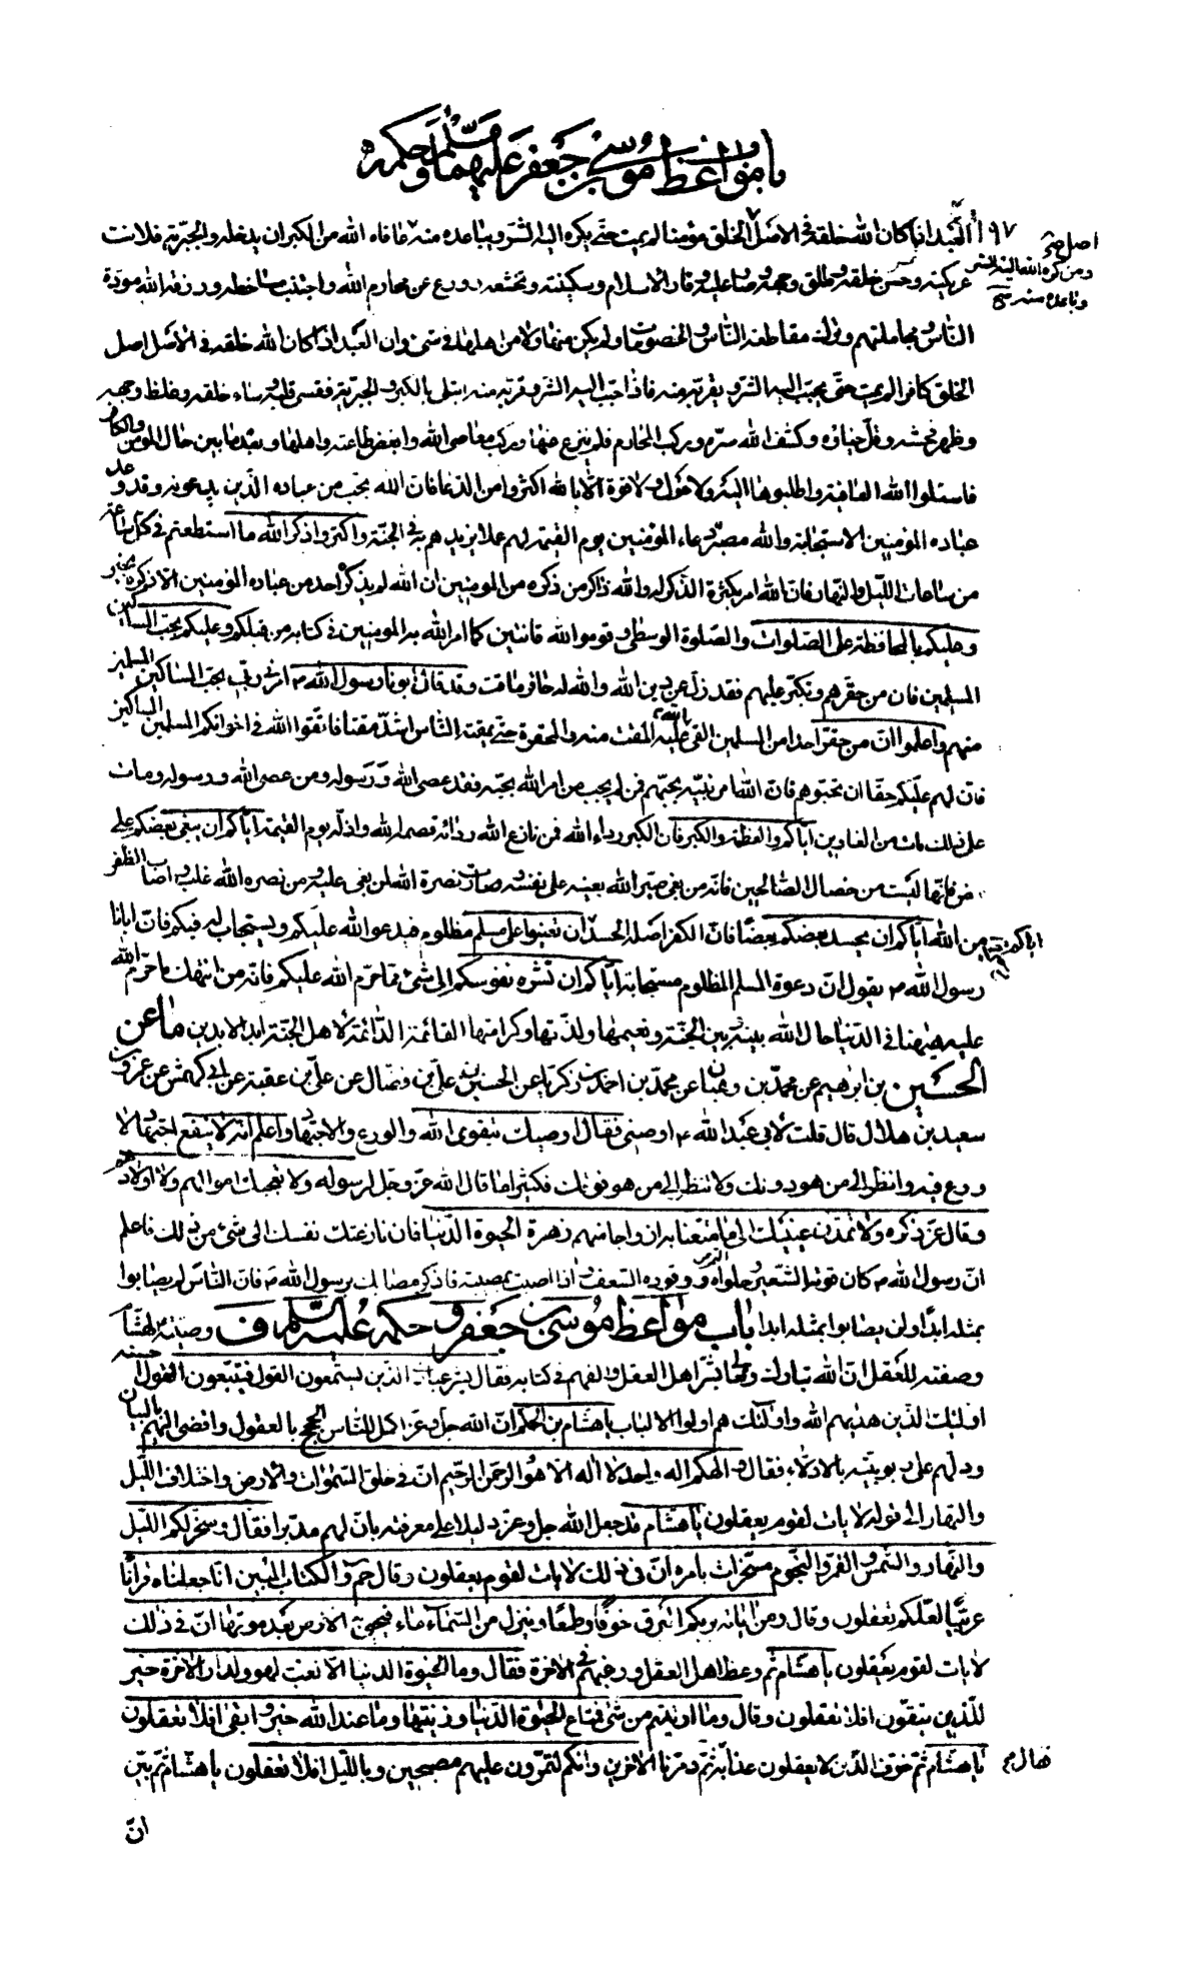 باب مواعظ موسى بن جعفر عليهما السلم وحكمه
١٩٧
أن العبد اذا كان الله خلقه فى الاصل اصل الخلق مؤمنا لم يمت حتى يكره اليه الشر ويباعده منه عافاه الله من الكبر ان يدخله والجبرية فلانت
عريكته وحسن خلقه وطلق وجهه وصار عليه وقار الاسلام وسكينته وتخشعه وورع عن محارم الله واجتنب مساخطه ورزقه الله مودة
الناس ومجاملتهم وترك مقاطعة الناس والخصومات ولم يكن منها ولا من اهلها فى شئ وان العبد اذا كان الله خلقه فى الاصل اصل
الخلق كافرا لم يمت حتى يحبب اليه الشر ويقربه منه فاذا حبب اليه الشر وقربه منه ابتلى بالكبر والجبرية فقسى قلبه وساء خلقه وغلظ وجهه
وظهر فحشه وقل حياؤه وكشف الله ستره وركب المحارم فلم ينزع عنها وركب معاصى الله وابغض طاعته واهلها فبعد ما بين حال المؤمن والكافر
فاسئلوا الله العافية واطلبوها اليه ولا حول ولا قوة الا بالله اكثروا من الدعا فان الله يحب من عباده الذين يدعونه وقد وعد
عباده المؤمنين الاستجابة والله مصير دعاء المؤمنين يوم القيمة لهم عملا يزيدهم به فى الجنة واكثروا ذكر الله ما استطعتم فى كل ساعة
من ساعات الليل والنهار فان الله امر بكثرة الذكر له والله ذاكر من ذكره من المومنين ان الله لم يذكره احد من عباده المؤمنين الا ذكره بخير
وعليكم بالمحافظة على الصلوات والصلوة الوسطى وقوموا لله قانتين كما امر الله به المومنين فى كتابه من قبلكم وعليكم بحب المساكين
المسلمين فان من حقرهم وتكبر عليهم فقد زل عن دين الله والله له حاقر ماقت وقد قال ابونا رسول الله ص امرنى ربى بحب المساكين المسلمين
منهم واعلموا ان من حقر احدا من المسلمين القى الله عليه المقت منه والمحقرة حتى يمقته الناس اشد مقتا فاتقوا الله فى اخوانكم المسلمين المساكين
فان لهم عليكم حقا ان تحبوهم فان الله امر نبيه بحبهم فمن لم يحب من امر الله بحبه فقد عصى الله ورسوله ومن عصى الله ورسوله ومات
على ذلك مات من الغاوين اياكم والعظمة والكبر فان الكبر رداء الله فمن نازع الله ردائه قصمه الله واذله يوم القيمة اياكم ان يبغى بعضكم على
بعض فانها ليست من خصال الصالحين فانه من بغى صير الله بغيه على نفسه وصارت نصرة الله لمن بغى عليه ومن نصره الله غلب واصاب الظفر
من الله اياكم ان يحسد بعضكم بعضا فان الكفر اصله الحسد ان تعينوا على مسلم مظلوم فيدعو الله عليكم ويستجاب له فيكم فان ابانا
رسول الله ص يقول ان دعوة المسلم المظلوم مستجابة اياكم ان تشره نفوسكم الى شئ مما حرم الله عليكم فانه من انتهك ما حرم الله
عليه ههنا فى الدنيا حال الله بينه وبين الجنة ونعيمها ولذتها وكرامتها القائمة الدائمة لاهل الجنة ابد الابدين ما عن
الحسين بن ابرهيم عن محمد بن وهبان عن محمد بن احمد بن زكريا عن الحسن بن على بن فضال عن على بن عقبة عن ابى كهمش عن عمرو بن
سعيد بن هلال قال قلت لابى عبد الله ع اوصنى فقال اوصيك بتقوى الله والورع والاجتهاد واعلم انه لا ينفع اجتهاد لا
ورع فيه وانظر الى من هو دونك ولا تنظر الى من هو فوقك فكثيرا ما قال الله عز وجل لرسوله ولا تعجبك اموالهم ولا اولادهم
وقال عز ذكره ولا تمدن عينيك الى ما متعنا به ازواجا منهم زهرة الحيوة الدنيا فان نازعتك نفسك الى شئ من ذلك فاعلم
ان رسول الله ص كان قوته الشعير وحلواه التمر ووقوده السعف واذا اصبت بمصيبة فاذكر مصابك برسول الله ص فان الناس لم يصابوا
بمثله ابدا ولن يصابوا بمثله ابدا باب مواعظ موسى بن جعفر وحكمه عليه السلم ف وصيته ع لهشام
وصفته للعقل ان الله تبارك وتعالى بشر اهل العقل والفهم فى كتابه فقال بشر عباد الذين يستمعون القول فيتبعون احسنه
اولئك الذين هديهم الله واولئك هم اولوا الالباب يا هشام بن الحكم ان الله جل وعز اكمل للناس الحجج بالعقول وافضى اليهم بالبيان
ودلهم على ربوبيته بالادلاء فقال والهكم اله واحد لا اله الا هو الرحمن الرحيم ان فى خلق السموات والارض واختلاف الليل
والنهار الى قوله لايات لقوم يعقلون يا هشام قد جعل الله جل وعز دليلا على معرفته بان لهم مدبرا فقال وسخر لكم الليل
والنهار والشمس والقمر والنجوم مسخرات بامره ان فى ذلك لايات لقوم يعقلون وقال حم والكتاب المبين انا جعلناه قرآنا
عربيا لعلكم تعقلون وقال ومن اياته يريكم البرق خوفا وطمعا وينزل من السماء ماء فيحيى به الارض بعد موتها ان فى ذلك
لايات لقوم يعقلون يا هشام ثم وعظ اهل العقل ورغبهم فى الاخرة فقال وما الحيوة الدنيا الا لعب لهو وللدار الاخرة خير
للذين يتقون افلا تعقلون وقال وما اوتيتم من شئ فمتاع الحيوة الدنيا وزينتها وما عند الله خير وابقى افلا تعقلون
يا هشام ثم خوف الذين لا يعقلون عذابه ثم دمرنا الاخرين وانكم لتمرون عليهم مصبحين وبالليل افلا تعقلون يا هشام ثم بين
ان